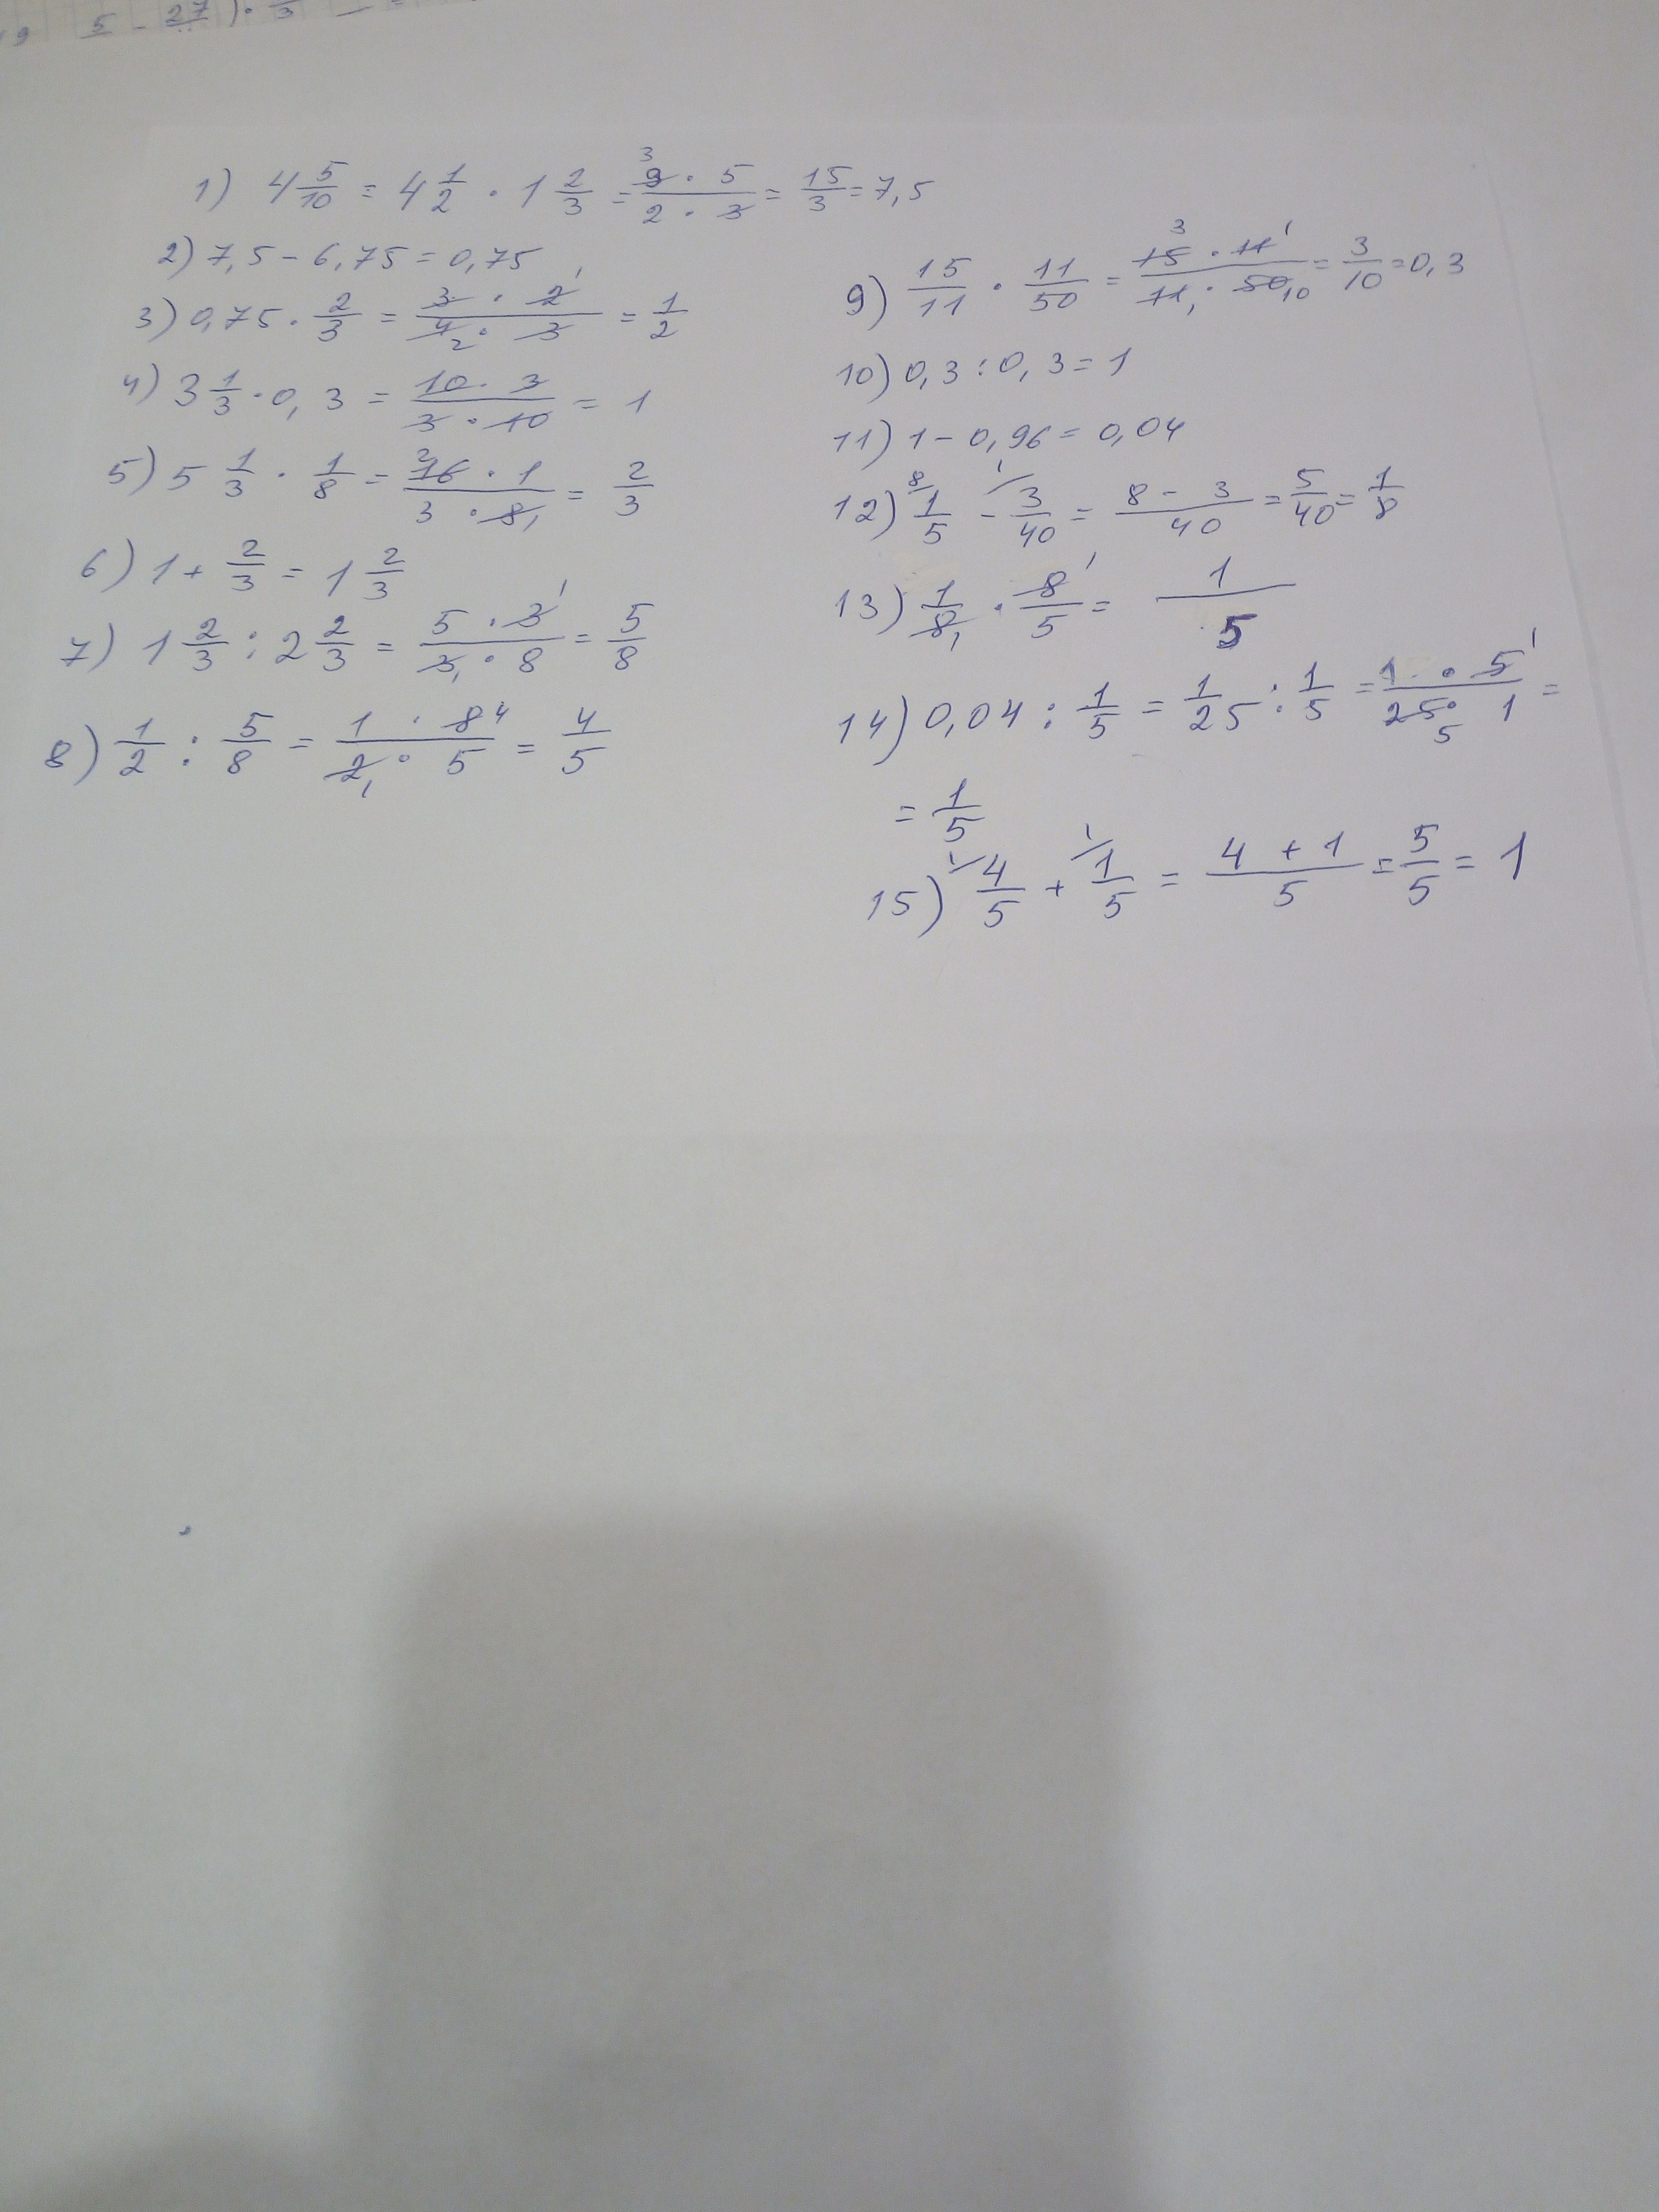 5/ - 27/ ) · /3 =
1) 4 5/10 = 4 1/2 · 1 2/3 = 9 3 · 5 / 2 · 3 = 15/3 = 7,5
2) 7,5 - 6,75 = 0,75
3) 0,75 · 2/3 = 3 · 2 1 / 4 2 · 3 = 1/2
4) 3 1/3 · 0,3 = 10 · 3 / 3 · 10 = 1
5) 5 1/3 · 1/8 = 16 2 · 1 / 3 · 8 1 = 2/3
6) 1 + 2/3 = 1 2/3
7) 1 2/3 : 2 2/3 = 5 · 3 1 / 3 1 · 8 = 5/8
8) 1/2 : 5/8 = 1 · 8 4 / 2 1 · 5 = 4/5
9) 15/11 · 11/50 = 15 3 · 11 1 / 11 1 · 50 10 = 3/10 = 0,3
10) 0,3 : 0,3 = 1
11) 1 - 0,96 = 0,04
12) 8/ 1/5 - 1/ 3/40 = 8 - 3 / 40 = 5/40 = 1/8
13) 1/8 1 · 8 1/5 = 1/5
14) 0,04 : 1/5 = 1/25 : 1/5 = 1 · 5 1 / 25 5 · 1 =
= 1/5
15) 1/ 4/5 + 1/ 1/5 = 4 + 1 / 5 = 5/5 = 1